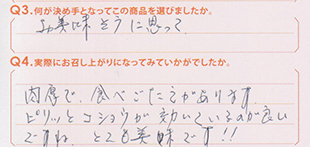 Q3.何が決め手となってこの商品を選びましたか。
お美味そうに思って
Q4.実際にお召し上がりになってみていかがでしたか。
肉厚で、食べごたえがあります。
ピリッとコショウが効いているのが良い
ですね。とても美味です!!